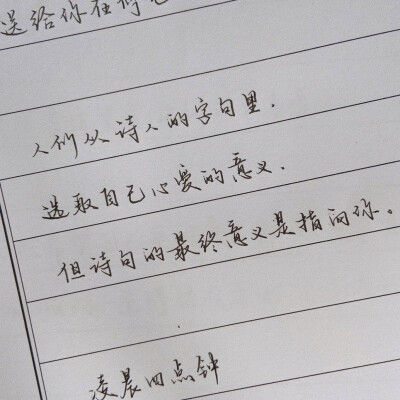 送给你在
人们从诗人的字句里.
选取自己心爱的意义.
但诗句的最终意义是指向你。
凌晨四点钟